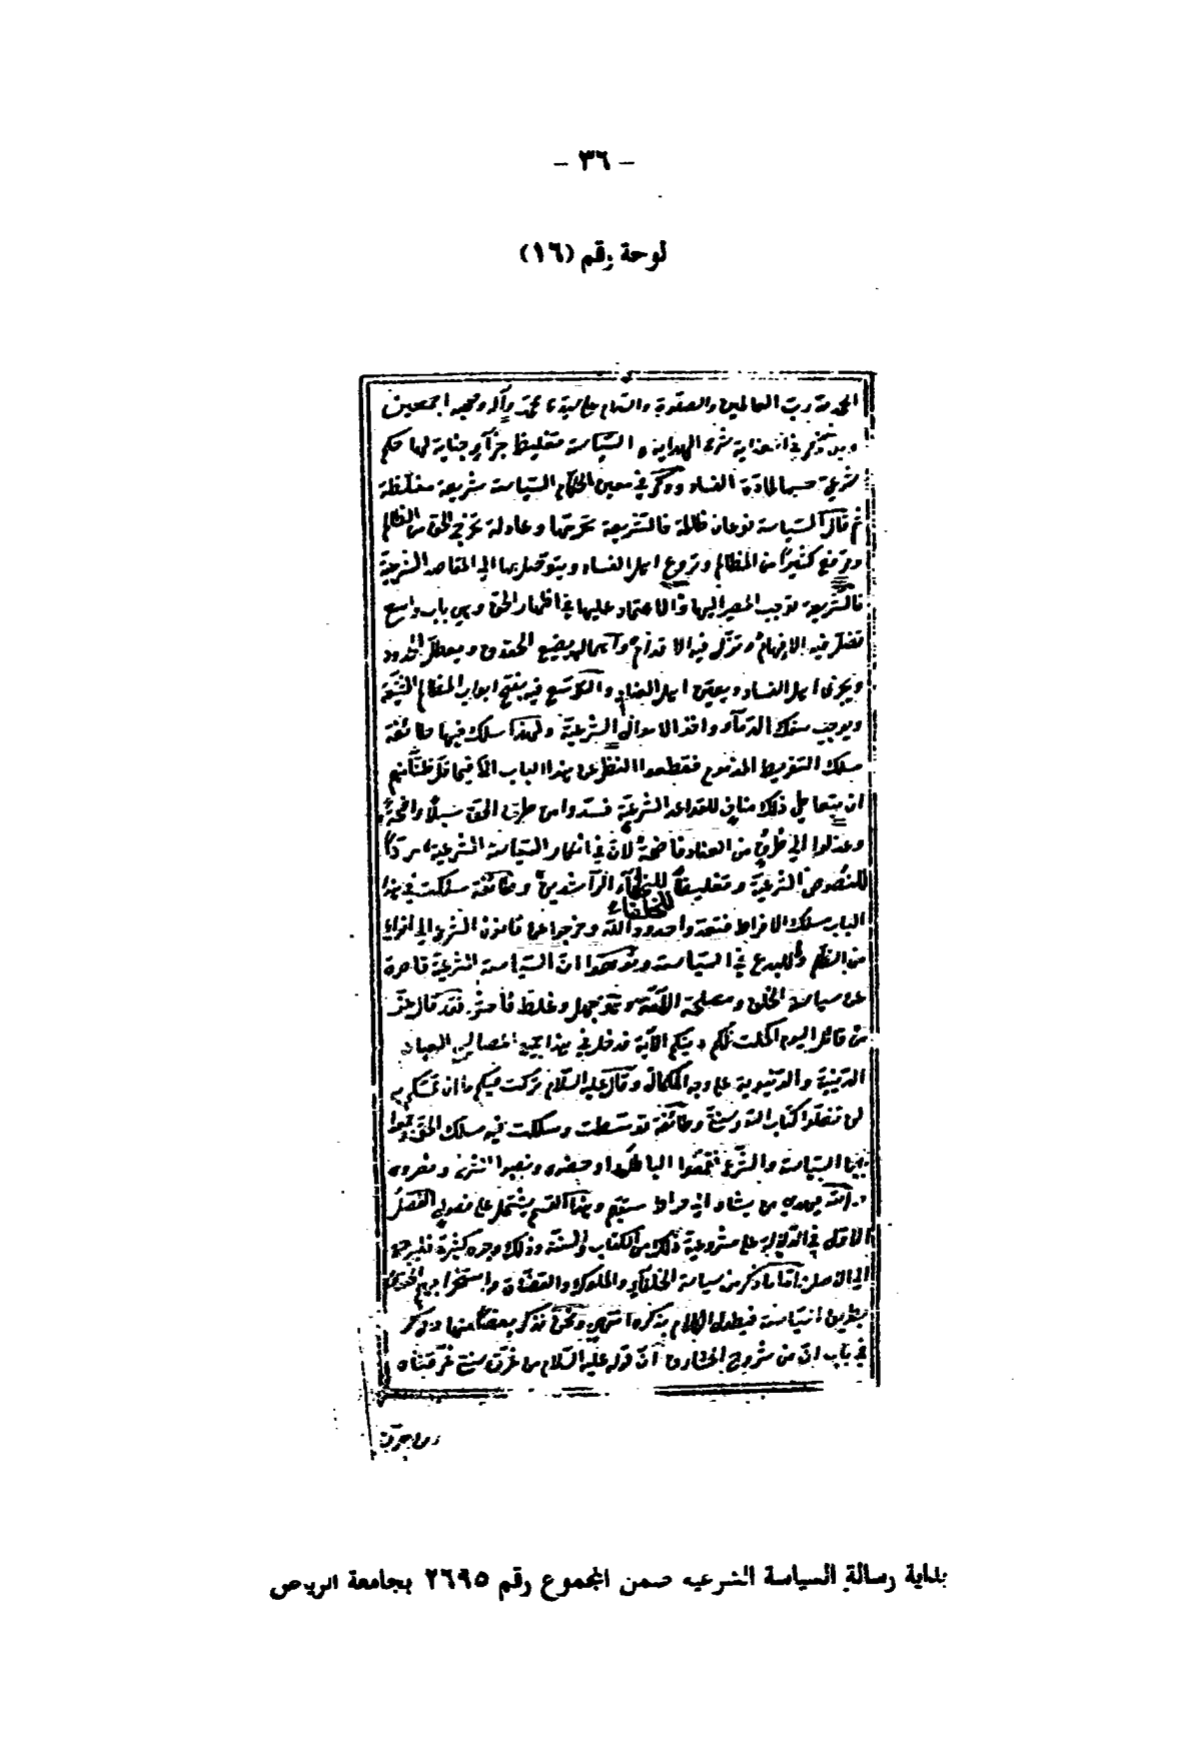 – ٣٦ –
لوحة رقم (١٦)
الحمد لله رب العالمين والصلوة والسلام على سيدنا محمد وآله وصحبه اجمعين
وبعد السياسة تغليظ جزآء جناية لها حكم
شرعي حسما لمادة الفساد وذكر في معين الحكام السياسة شريعة مغلظة
ثم قال السياسة نوعان ظالمة فالشريعة تحرمها وعادلة تخرج الحق من الظالم
وترفع كثيرا من المظالم وتروع اهل الفساد ويتوصل بها الى المقاصد الشرعية
فالشريعة توجب المصير اليها والاعتماد عليها في اظهار الحق وهي باب واسع
تضل فيه الافهام وتزل فيه الاقدام واهماله يضيع الحقوق ويعطل الحدود
ويجرئ اهل الفساد ويعين اهل العناد والتوسع فيه يفتح ابواب المظالم الشنيعة
ويوجب سفك الدمآء واخذ الاموال الشرعية ولهذا سلك فيها طائفة
مسلك التفريط المذموم فقطعوا النظر عن هذا الباب الا فيما قل ظنا منهم
ان تعاطي ذلك مناف للقواعد الشرعية فسدوا من طرق الحق سبلا واضحة
وعدلوا الى طرق من العناد فاضحة لان في انكار السياسة الشرعية ردا
للنصوص الشرعية وتغليطا للخلفآء الراشدين وطائفة سلكت في هذا
للخلفاء
الباب مسلك الافراط فتعدوا حدود الله وخرجوا عن قانون الشرع الى انواع
من الظلم والبدع في السياسة وتوهموا ان السياسة الشرعية قاصرة
عن سياسة الخلق ومصلحة الامة وهو جهل وغلط فاحش فقد قال عز
من قائل اليوم اكملت لكم دينكم الآية فدخل في هذا جميع مصالح العباد
الدينية والدنيوية على وجه الكمال وقال عليه السلام تركت فيكم ما ان تمسكتم به
لن تضلوا كتاب الله وسنتي وطائفة توسطت وسلكت فيه مسلك الحق وجمعوا
بين السياسة والشرع فقمعوا الباطل ودحضوه ونصبوا الشرع ونصروه
والله يهدي من يشاء الى صراط مستقيم وهذا القسم يشتمل على فصول الفصل
الاول في الدلالة على مشروعية ذلك من الكتاب والسنة وذلك وجوه كثيرة فليرجع
الى الاصل واما ما ذكر من سياسة الخلفآء والملوك والقضاة واستخراجهم الحقوق
بطريق السياسة فيطول الكلام بذكره انتهى ونحن نذكر بعضا منها وذكر
في باب ان من شروح المشارق ان قوله عليه السلام من غرق سنتي غرقناه
ومن احرق
بداية رسالة السياسة الشرعيه ضمن المجموع رقم ٢٦٩٥ بجامعة الرياض